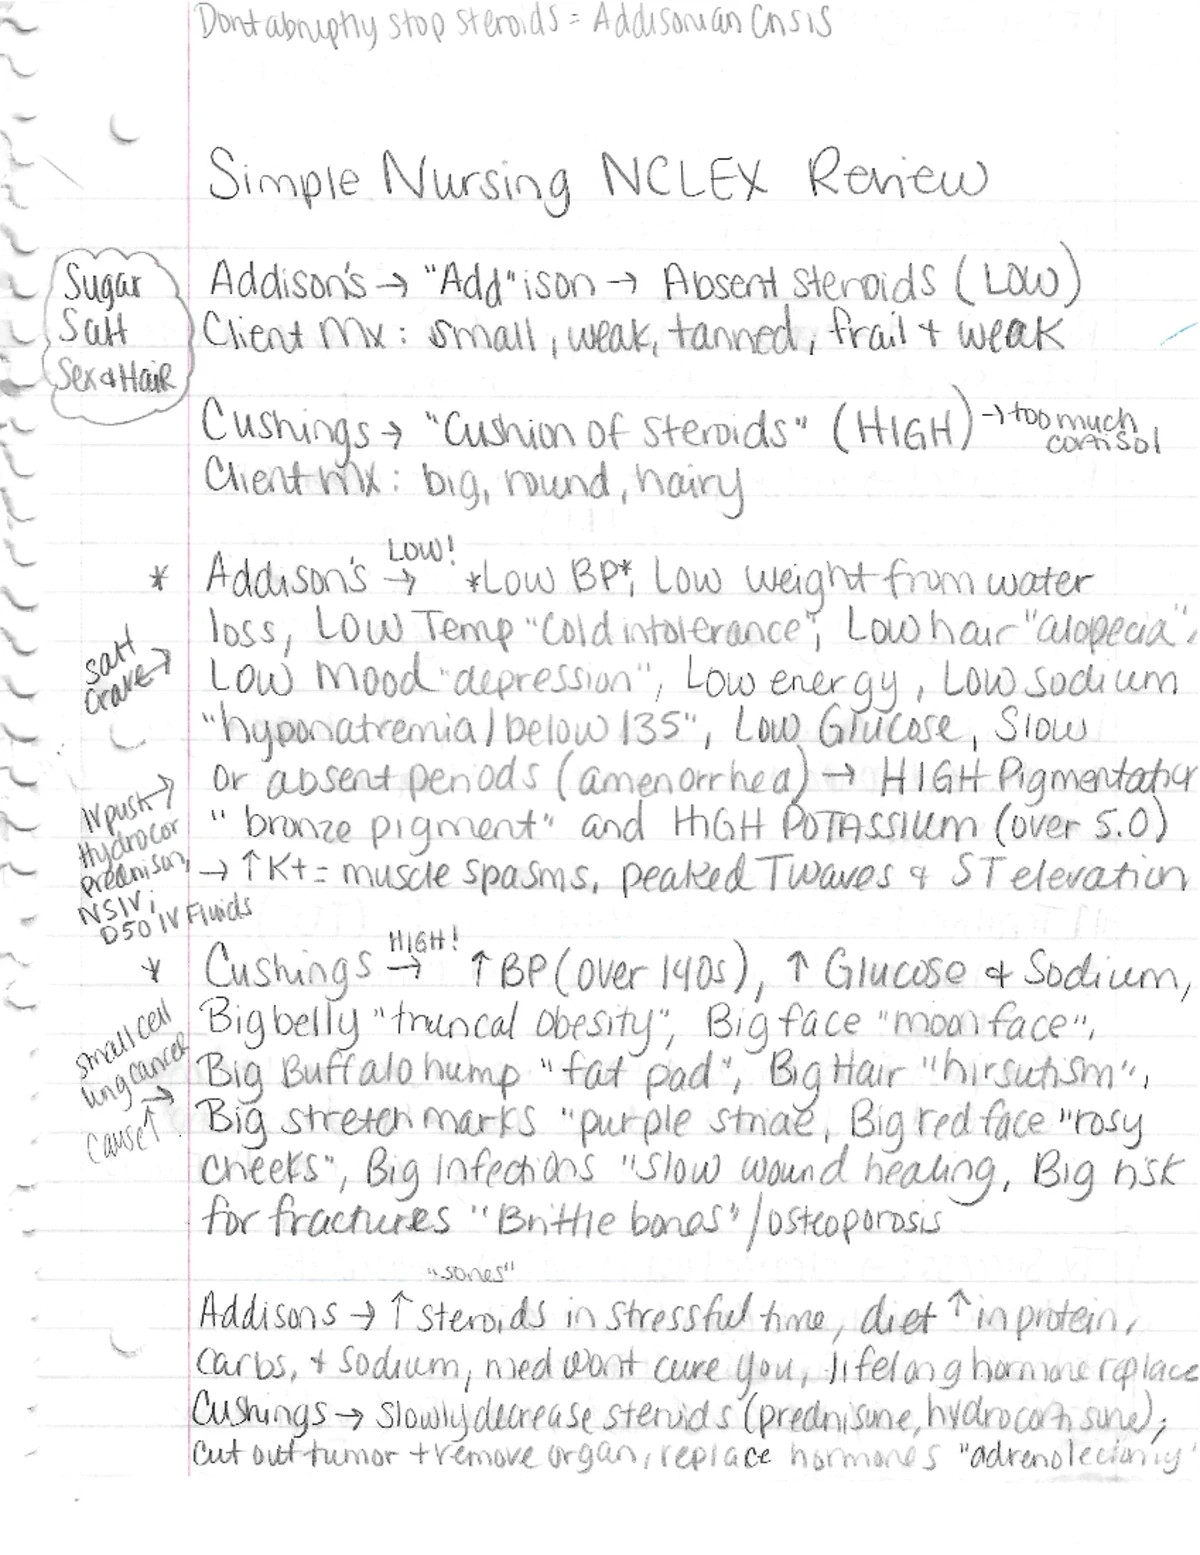 Dont abruptly stop steroids = Addisonian Crisis
Simple Nursing NCLEX Review
Sugar
Salt
Sex & Hair
Addison's → "Add"ison → Absent steroids (LOW)
Client Mx: small, weak, tanned, frail + weak
Cushings → "Cushion of steroids" (HIGH) → too much
cortisol
Client Mx: big, round, hairy
LOW!
* Addison's → *Low BP*, Low weight from water
loss, LOW Temp "Cold intolerance", Low hair "alopecia",
salt
crave →
Low Mood "depression", Low energy, Low sodium
"hyponatremia/below 135", Low Glucose, Slow
or absent periods (amenorrhea) → HIGH Pigmentation
" bronze pigment" and HIGH POTASSIUM (over 5.0)
→ ↑K+ = muscle spasms, peaked T waves & ST elevation
IV push →
Hydrocor
Prednison,
NSIVi
D50 IV Fluids
HIGH!
* Cushings → ↑BP (over 140s), ↑ Glucose & Sodium,
Big belly "truncal obesity", Big face "moon face",
Big Buffalo hump "fat pad", Big Hair "hirsutism",
Big stretch marks "purple striae, Big red face "rosy
cheeks", Big Infections "slow wound healing, Big risk
for fractures "Brittle bones"/osteoporosis
small cell
lung cancer
→
cause ↑
"sones"
Addisons → ↑ steroids in stressful time, diet ↑ in protein,
carbs, + sodium, med wont cure you, lifelong hormone replace
Cushings → slowly decrease steroids (prednisone, hydrocortisone),
cut out tumor + remove organ, replace hormones "adrenolectomy"